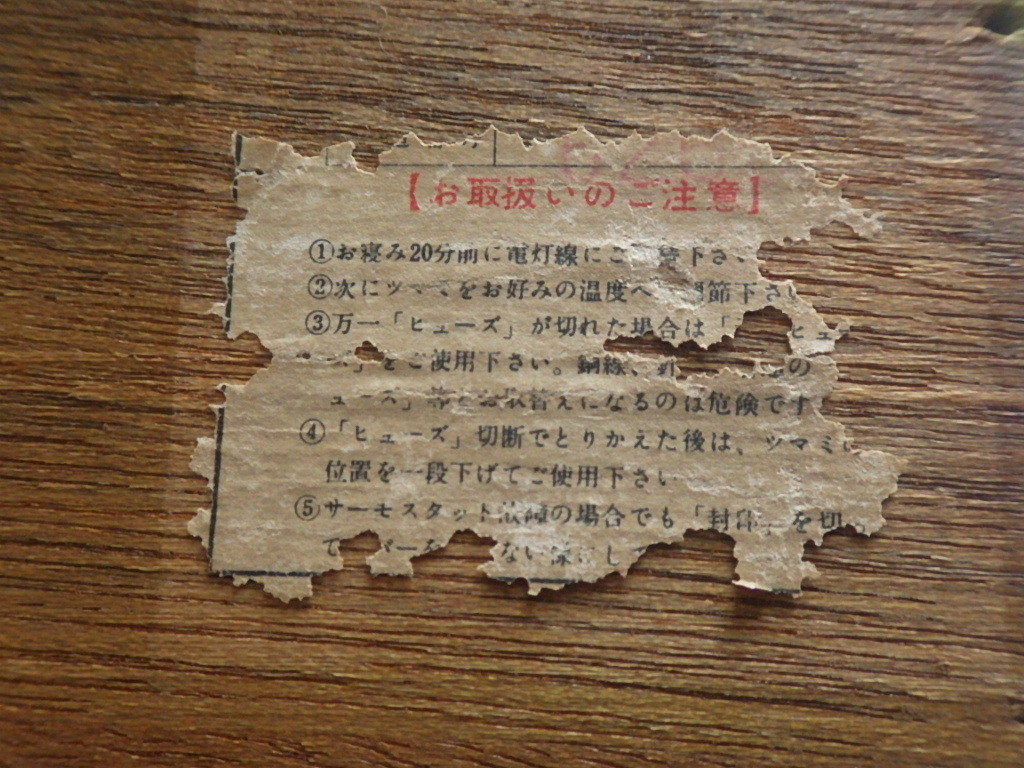 【お取扱いのご注意】
①お寝み20分前に電灯線にご 下さ
②次にツ をお好みの温度へ 節下さい
③万一「ヒューズ」が切れた場合は「 ヒュー
ズ」をご使用下さい。銅線、針 の
ューズ」等とお取替えになるのは危険です
④「ヒューズ」切断でとりかえた後は、ツマミ
位置を一段下げてご使用下さい
⑤サーモスタット故障の場合でも「封印」を切
て バーを ない様にして